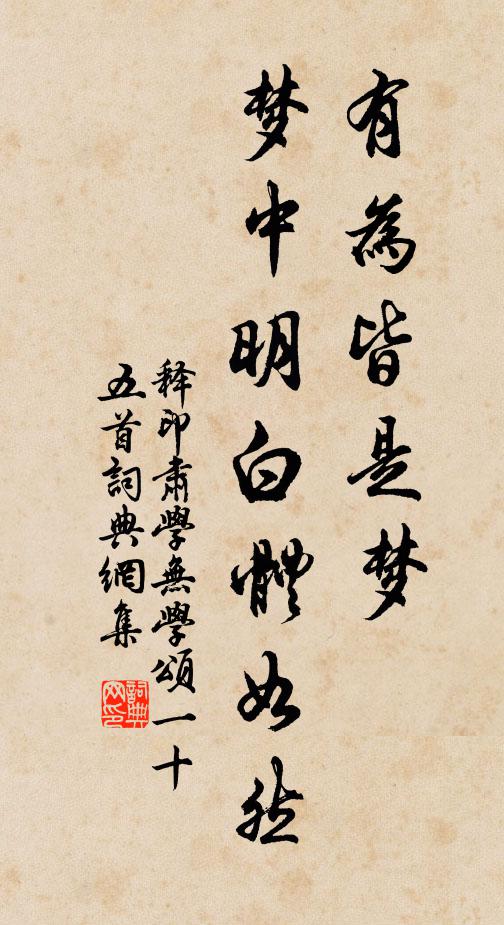 有為皆是梦
梦中明白體如然
释印肅學無學頌一十
五首詞典網集
詞典
网印